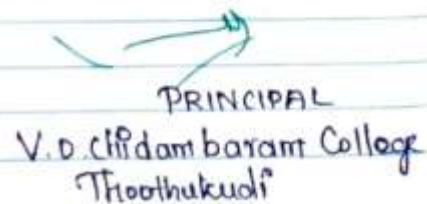 PRINCIPAL
V.O.Chidambaram College
Thoothukudi